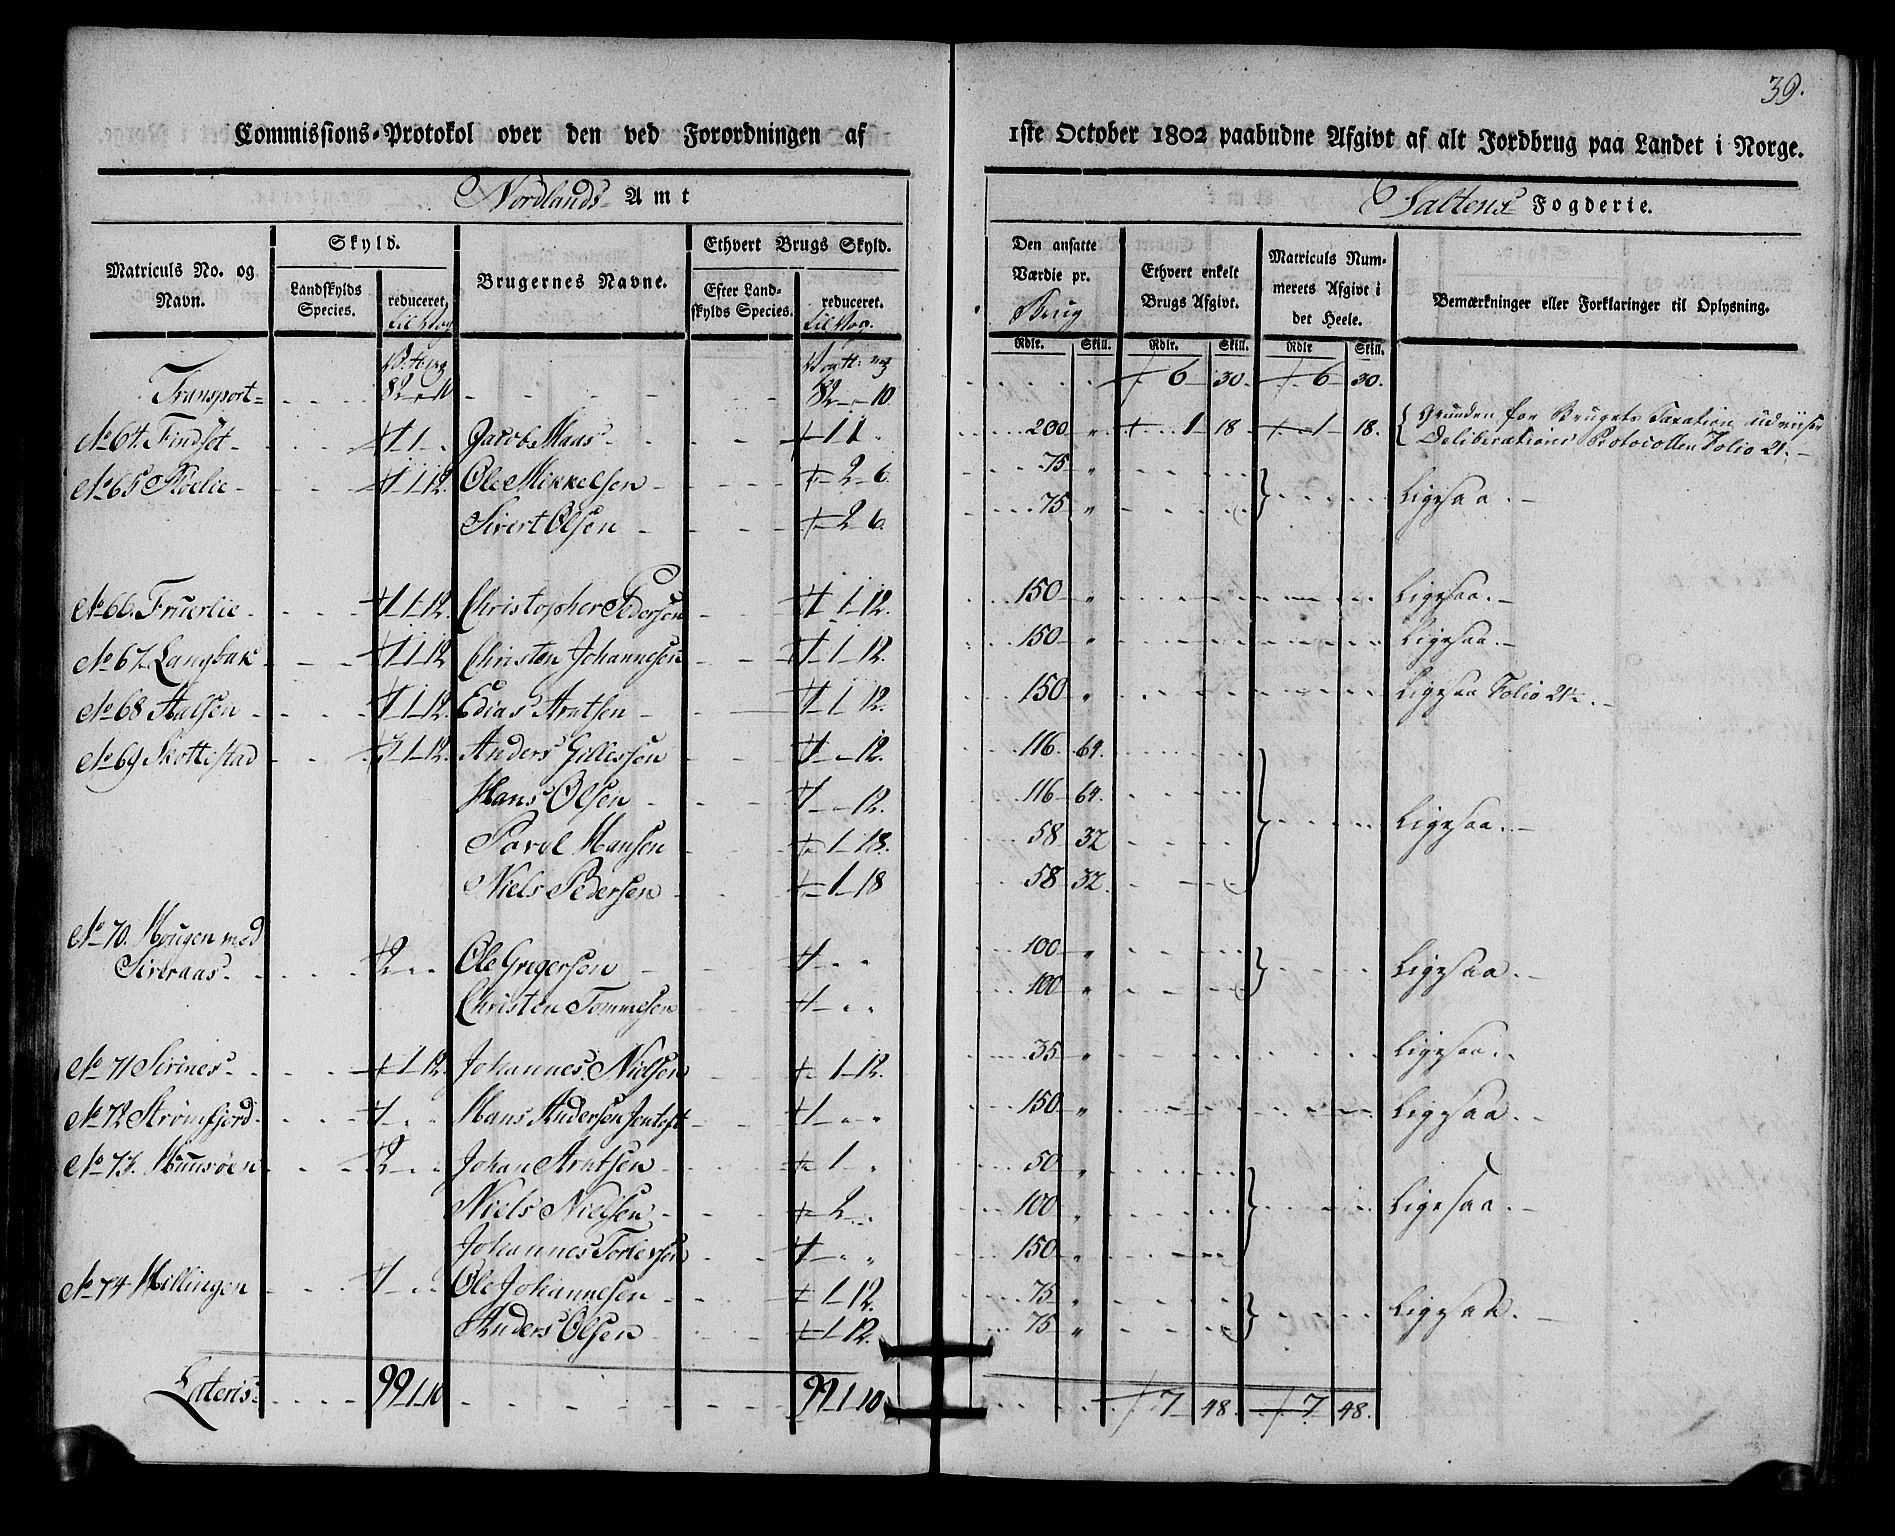 39.
Commissions-Protokol over den ved Forordningen af 1ste October 1802 paabudne Afgivt af alt Jordbrug paa Landet i Norge.
Nordlands Amt
Saltens Fogderie.
Matriculs No. og Navn.
Skyld.
Landskylds Species.
reduceret, til Vog
Brugernes Navne.
Ethvert Brugs Skyld.
Efter Landskylds Species.
reduceret. til Vog.
Den ansatte Værdie pr. Brug
Ethvert enkelt Brugs Afgivt.
Matriculs Nummerets Afgivt i det Heele.
Bemærkninger eller Forklaringer til Oplysning.
Rdlr. Skill. Rdlr. Skill. Rdlr Skill.
Transport 82 " 10 82 - 10. 6 30. 6 30.
No 64. Findset 1 - Jacob Maas 1 200 " 1 18 1 18. Grunden for Brugets Taxation udviiser Deliberations Protocollen Folio 21.
No 65 1-12 Ole Mikkelsen 2-6. 75 "
Sivert Olsen 2-6. 75 " Ligesaa.
No 66. Fruerlie 1-12. Christopher Pedersen 1-12. 150 " Ligesaa.
No 67. Langbak 1-12 Christen Johannesen 1-12. 150 " Ligesaa.
No 68 1-12. Edias Arntsen 1-12. 150 " Ligesaa Folio 21.
No 69 Skottestad 1-12. Anders Gillessen 12. 116. 64.
Hans Olsen 12. 116 64.
Povel Hansen 1-18. 58 32 Ligesaa.
Niels Pedersen 1-18 58 32.
No 70. Hougen med
2 " " Ole Grigersen " " 100 "
Christen Tommesen " " 100 " Ligesaa.
No 71 Sirines 1-12. Johannes Nielsen 1-12. 35 " Ligesaa.
No 72 Strømfjord " " Hans Andersen Jentoft " " 150 " Ligesaa.
No 73. 2 " " Johan Arntsen 1 " 50 "
Niels Nielsen 2 " 100 " Ligesaa.
Johannes " " 150 "
No 74 Hillingen " " Ole Johannesen 1-12. 75 "
Anders Olsen 1-12. 75 " Ligesaa.
Lateris 99-1-10 99-1-10. 7 48. 7 48.